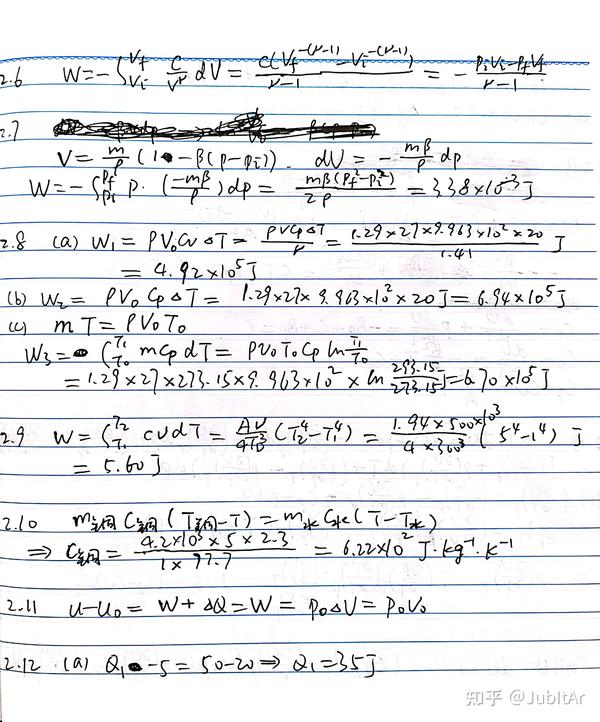 2.6 W=-∫_{Vi}^{Vf} C/V^γ dV = C(Vf^{-(γ-1)}-Vi^{-(γ-1)})/(γ-1) = -(PiVi-PfVf)/(γ-1)
2.7
V = m/ρ (1-β(p-pi)). dV = -mβ/ρ dp
W=-∫_{pi}^{pf} p·(-mβ/ρ)dp = mβ(pf²-pi²)/2ρ = 338×10⁻³J
2.8 (a) W₁ = ρV₀CvΔT = ρVCpΔT/γ = 1.29×27×9.963×10²×20/1.41 J
= 4.92×10⁵J
(b) W₂ = ρV₀CpΔT = 1.29×27×9.963×10²×20J = 6.94×10⁵J
(c) mT = ρV₀T₀
W₃ = ∫_{T₀}^{T₁} mCpdT = ρV₀T₀Cp ln T₁/T₀
= 1.29×27×273.15×9.963×10²×ln 293.15/273.15 J = 6.70×10⁵J
2.9 W = ∫_{T₁}^{T₂} CνdT = Aν/4T₀³ (T₂⁴-T₁⁴) = 1.94×500×10³/4×300³ (5⁴-1⁴) J
= 5.60J
2.10 m铜C铜(T铜-T) = m水C水(T-T水)
⇒ C铜 = 4.2×10³×5×2.3/1×97.7 = 6.22×10² J·kg⁻¹·K⁻¹
2.11 U-U₀ = W+ΔQ = W = P₀ΔV = P₀V₀
2.12 (a) Q₁-5=50-20 ⇒ Q₁=35J
知乎 @JubItAr